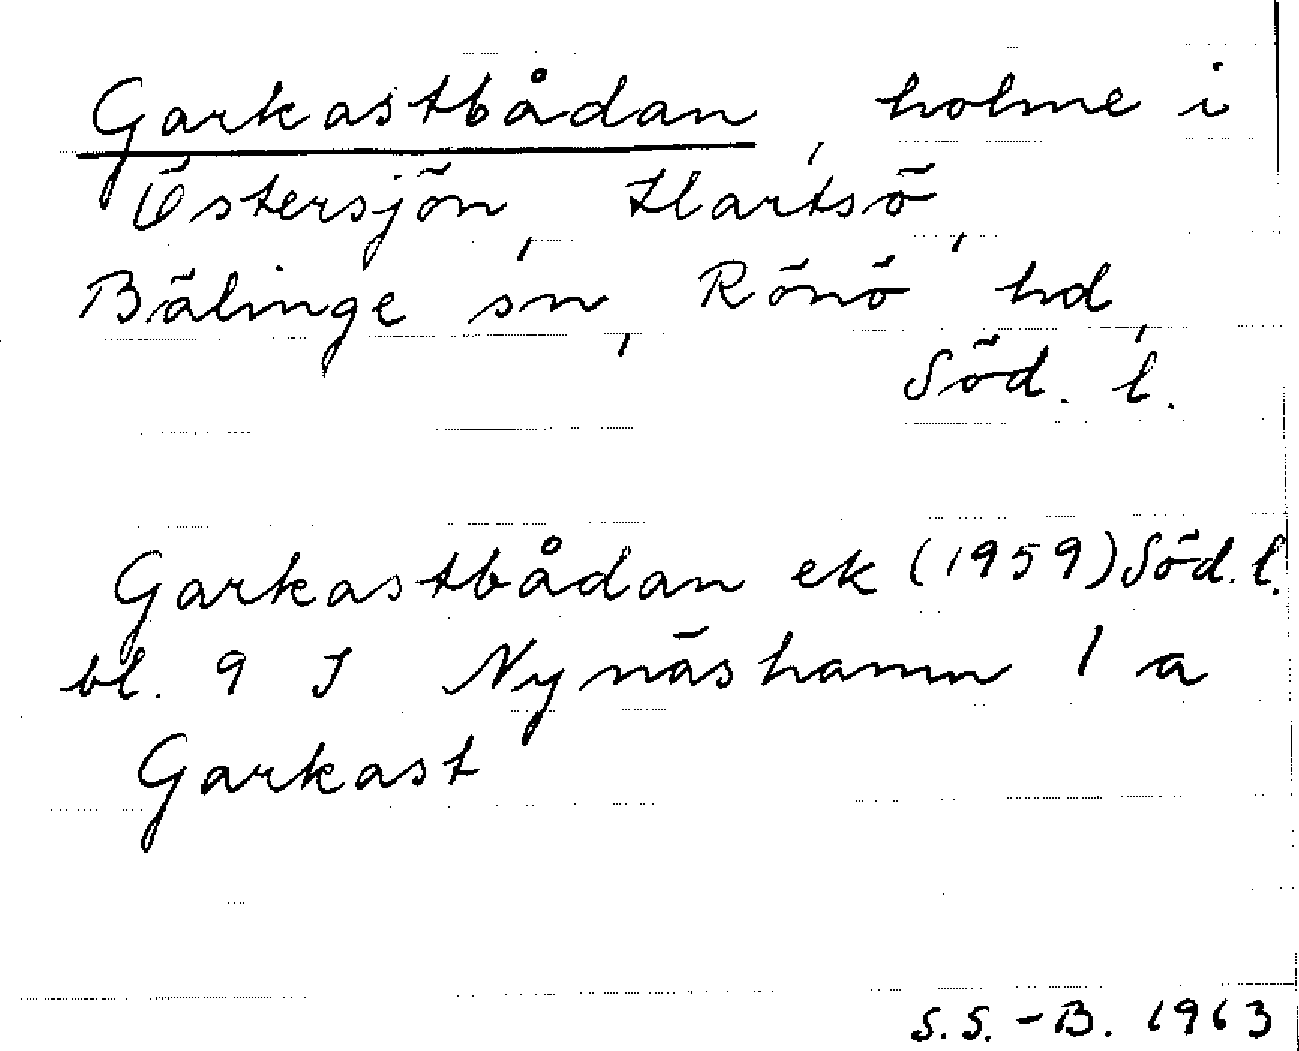 Garkastbådan, holme i
Östersjön, Hartsö,
Bälinge sn, Rönö hd,
Söd. l.
Garkastbådan ek (1959) Söd. l.
bl. 9 I Nynäshamn 1 a
Garkast
S.S.-B. 1963